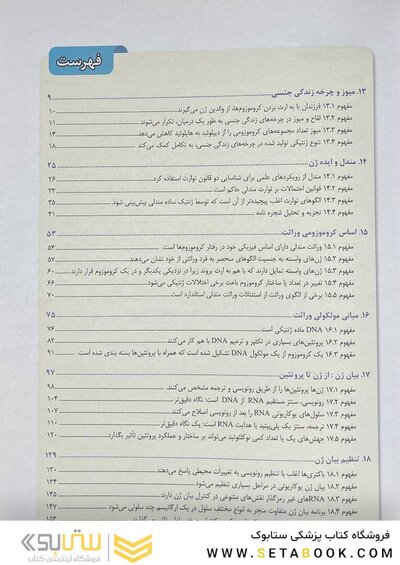 فهرست
۱۳. میوز و چرخه زندگی جنسی ۹
مفهوم ۱۳.۱ فرزندان با به ارث بردن کروموزوم‌ها، از والدین ژن می‌گیرند ۱۰
مفهوم ۱۳.۲ لقاح و میوز در چرخه‌های زندگی جنسی به طور یک درمیان، تکرار می‌شوند ۱۱
مفهوم ۱۳.۳ میوز تعداد مجموعه‌های کروموزومی را از دیپلوئید به هاپلوئید کاهش می‌دهد ۱۴
مفهوم ۱۳.۴ تنوع ژنتیکی تولید شده در چرخه‌های زندگی جنسی، به تکامل کمک می‌کند ۱۸
۱۴. مندل و ایده ژن ۲۵
مفهوم ۱۴.۱ مندل از رویکردهای علمی برای شناسایی دو قانون توارث استفاده کرد ۲۶
مفهوم ۱۴.۲ قوانین احتمالات بر توارث مندلی حاکم است ۳۲
مفهوم ۱۴.۳ الگوهای توارث اغلب پیچیده‌تر از آن است که توسط ژنتیک ساده مندلی پیش‌بینی شود ۳۵
مفهوم ۱۴.۴ تجزیه و تحلیل شجره نامه ۴۱
۱۵. اساس کروموزومی وراثت ۵۳
مفهوم ۱۵.۱ وراثت مندلی دارای اساس فیزیکی خود در رفتار کروموزوم‌ها است ۵۴
مفهوم ۱۵.۲ ژن‌های وابسته به جنسیت الگوهای منحصر به فرد وراثتی از خود نشان می‌دهند ۵۷
مفهوم ۱۵.۳ ژن‌های وابسته تمایل دارند که با هم به ارث بروند زیرا در نزدیکی یکدیگر و در یک کروموزوم قرار دارند ۶۰
مفهوم ۱۵.۴ تغییر در تعداد یا ساختار کروموزوم باعث برخی اختلالات ژنتیکی می‌شود ۶۶
مفهوم ۱۵.۵ برخی از الگوی وراثت از استثنائات وراثت مندلی استاندارد است ۷۰
۱۶. مبانی مولکولی وراثت ۷۵
مفهوم ۱۶.۱ DNA ماده ژنتیکی است ۷۶
مفهوم ۱۶.۲ پروتئین‌های بسیاری در تکثیر و ترمیم DNA با هم کار می‌کنند ۸۲
مفهوم ۱۶.۳ یک کروموزوم از یک مولکول DNA تشکیل شده است که همراه با پروتئین‌ها بسته بندی شده است ۹۱
۱۷. بیان ژن : از ژن تا پروتئین ۹۷
مفهوم ۱۷.۱ ژن‌ها پروتئین‌ها را از طریق رونویسی و ترجمه مشخص می‌کنند ۹۸
مفهوم ۱۷.۲ رونویسی، سنتز مستقیم RNA از DNA است: نگاه دقیق‌تر ۱۰۴
مفهوم ۱۷.۳ سلول‌های یوکاریوتی RNA را بعد از رونویسی اصلاح می‌کنند ۱۰۷
مفهوم ۱۷.۴ ترجمه، سنتز یک پلی‌پپتید با هدایت RNA است: یک نگاه دقیق‌تر ۱۱۰
مفهوم ۱۷.۵ جهش‌های یک یا تعداد کمی نوکلئوتید می‌تواند بر ساختار و عملکرد پروتئین تأثیر بگذارد ۱۲۰
۱۸. تنظیم بیان ژن ۱۲۹
مفهوم ۱۸.۱ باکتری‌ها اغلب با تنظیم رونویسی به تغییرات محیطی پاسخ می‌دهند ۱۳۰
مفهوم ۱۸.۲ بیان ژن یوکاریوتی در مراحل بسیاری تنظیم می‌شود ۱۳۴
مفهوم ۱۸.۳ RNAهای غیر رمزگذار نقش‌های متنوعی در کنترل بیان ژن دارند ۱۴۵
مفهوم ۱۸.۴ برنامه بیان ژن متفاوت منجر به انواع مختلف سلول در یک ارگانیسم چند سلولی می‌شود ۱۴۷
فروشگاه کتاب پزشکی ستابوک
WWW.SETABOOK.COM
ستابوک
فروشگاه اینترنتی کتاب